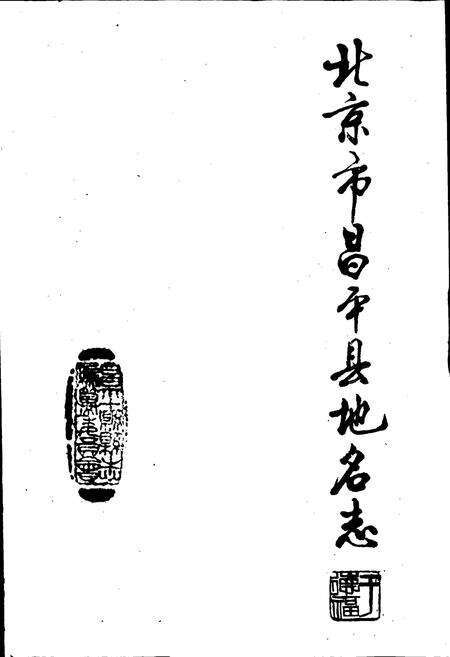 北京市昌平县地名志